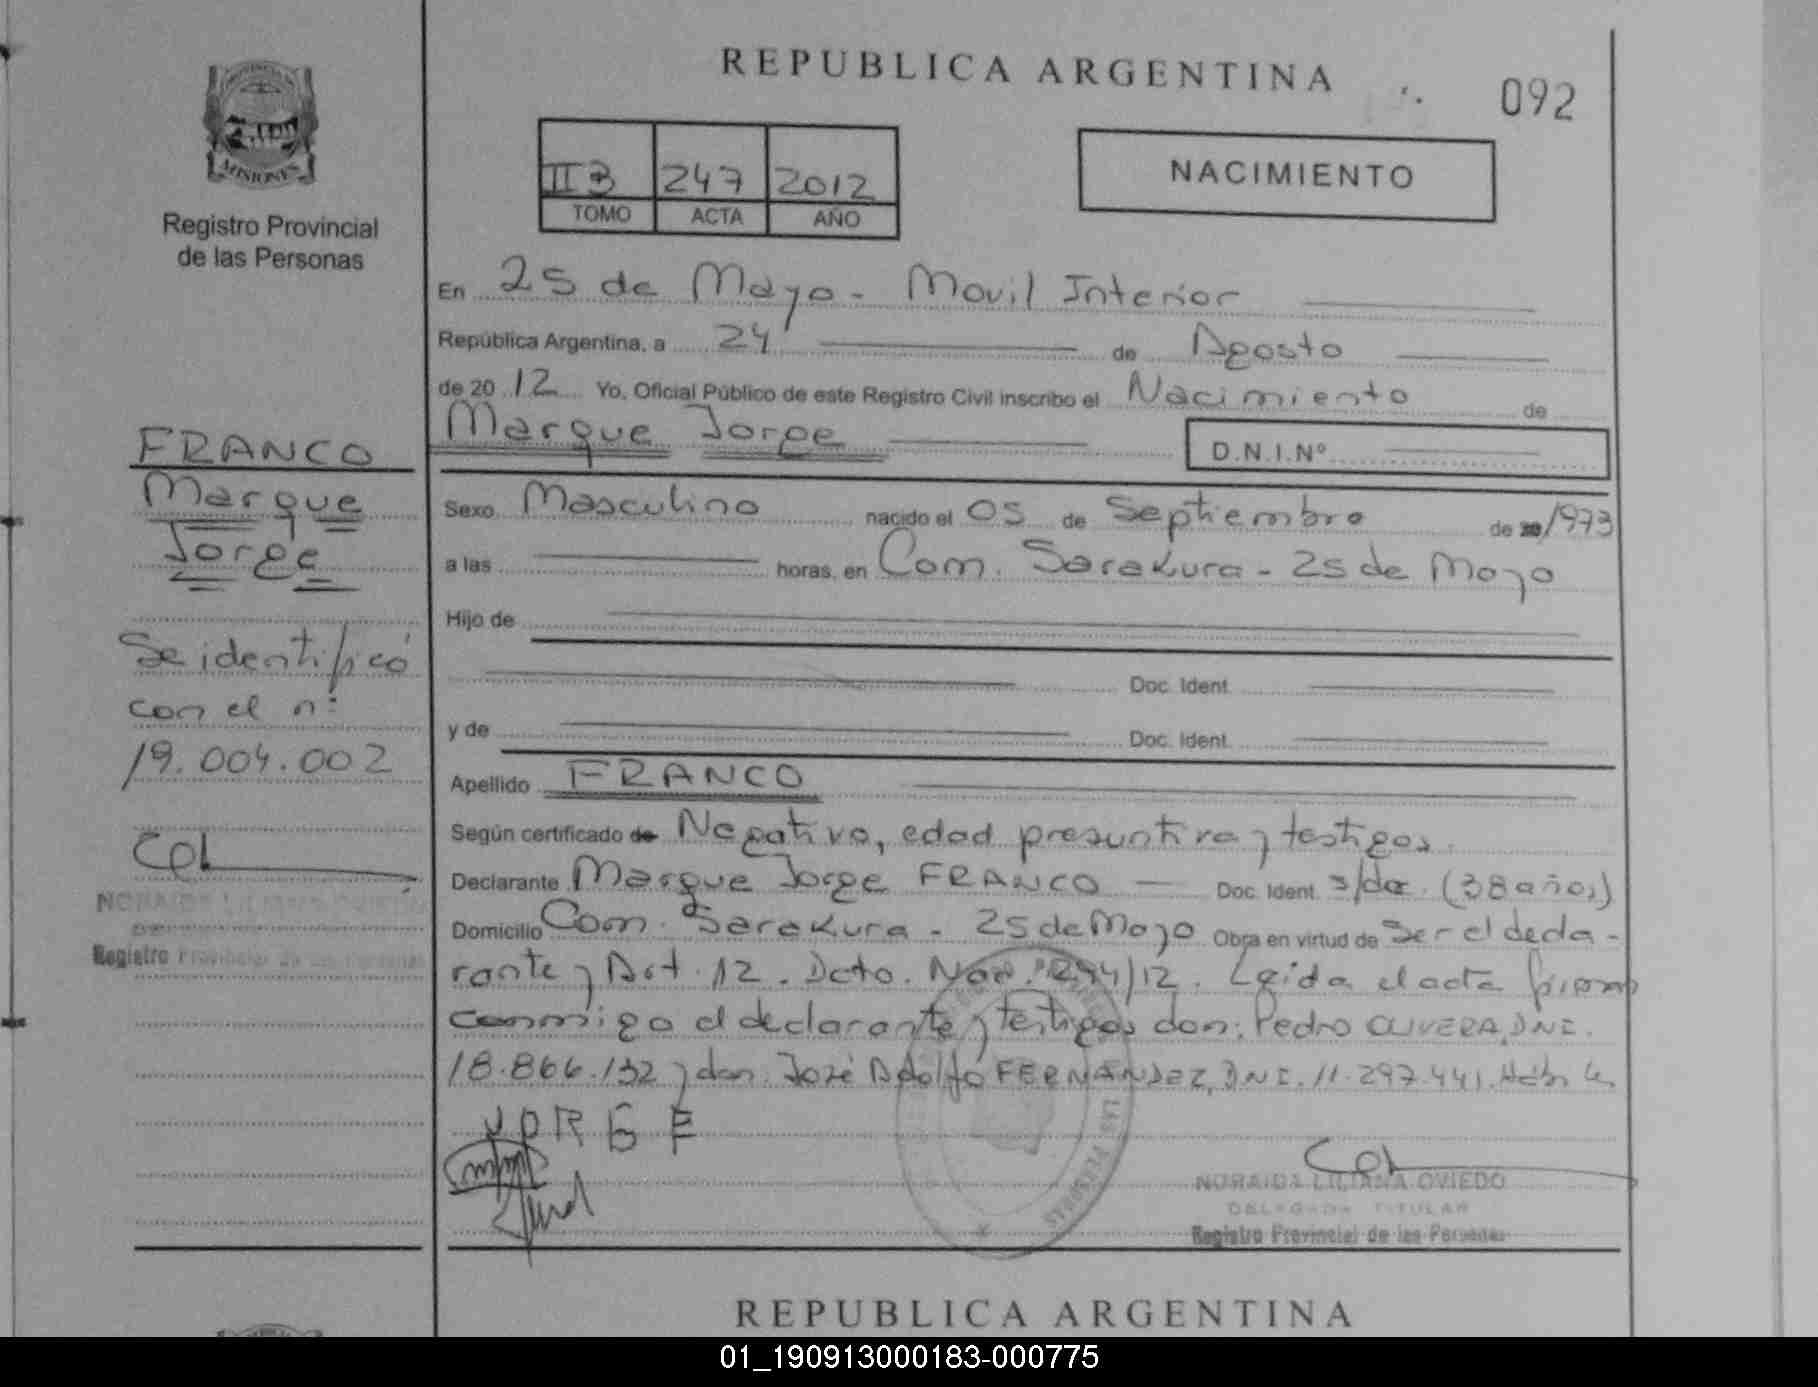 REPUBLICA ARGENTINA
092
PROVINCIA DE
MISIONES
Registro Provincial
de las Personas
II B 247 2012
TOMO ACTA AÑO
NACIMIENTO
En 25 de Mayo - Movil Interior
República Argentina, a 24 de Agosto
de 20 12 Yo, Oficial Público de este Registro Civil inscribo el Nacimiento de
Marque Jorge D.N.I.Nº
Sexo Masculino nacido el 05 de Septiembre de 20 1973
a las horas, en Com. Sarakura - 25 de Mayo
Hijo de
Doc. Ident.
y de Doc. Ident.
Apellido FRANCO
Según certificado de Negativo, edad presuntiva y testigos.
Declarante Marque Jorge FRANCO Doc. Ident. s/doc. (38 años)
Domicilio Com. Sarakura - 25 de Mayo Obra en virtud de Ser el decla-
rante y Art. 12. Dcto. Nac. 294/12. Leida el acta firman
conmigo el declarante y testigos don: Pedro OLIVERA, DNI.
18.866.132 y don: José Adolfo FERNÁNDEZ, DNI. 11.297.441.
JORGE
LAS PERSONAS
NORAIDA LILIANA OVIEDO
DELEGADA TITULAR
Registro Provincial de las Personas
FRANCO
Marque
Jorge
Se identificó
con el nº
19.004.002
NORAIDA LILIANA OVIEDO
Registro Provincial de las Personas
REPUBLICA ARGENTINA
01_190913000183-000775